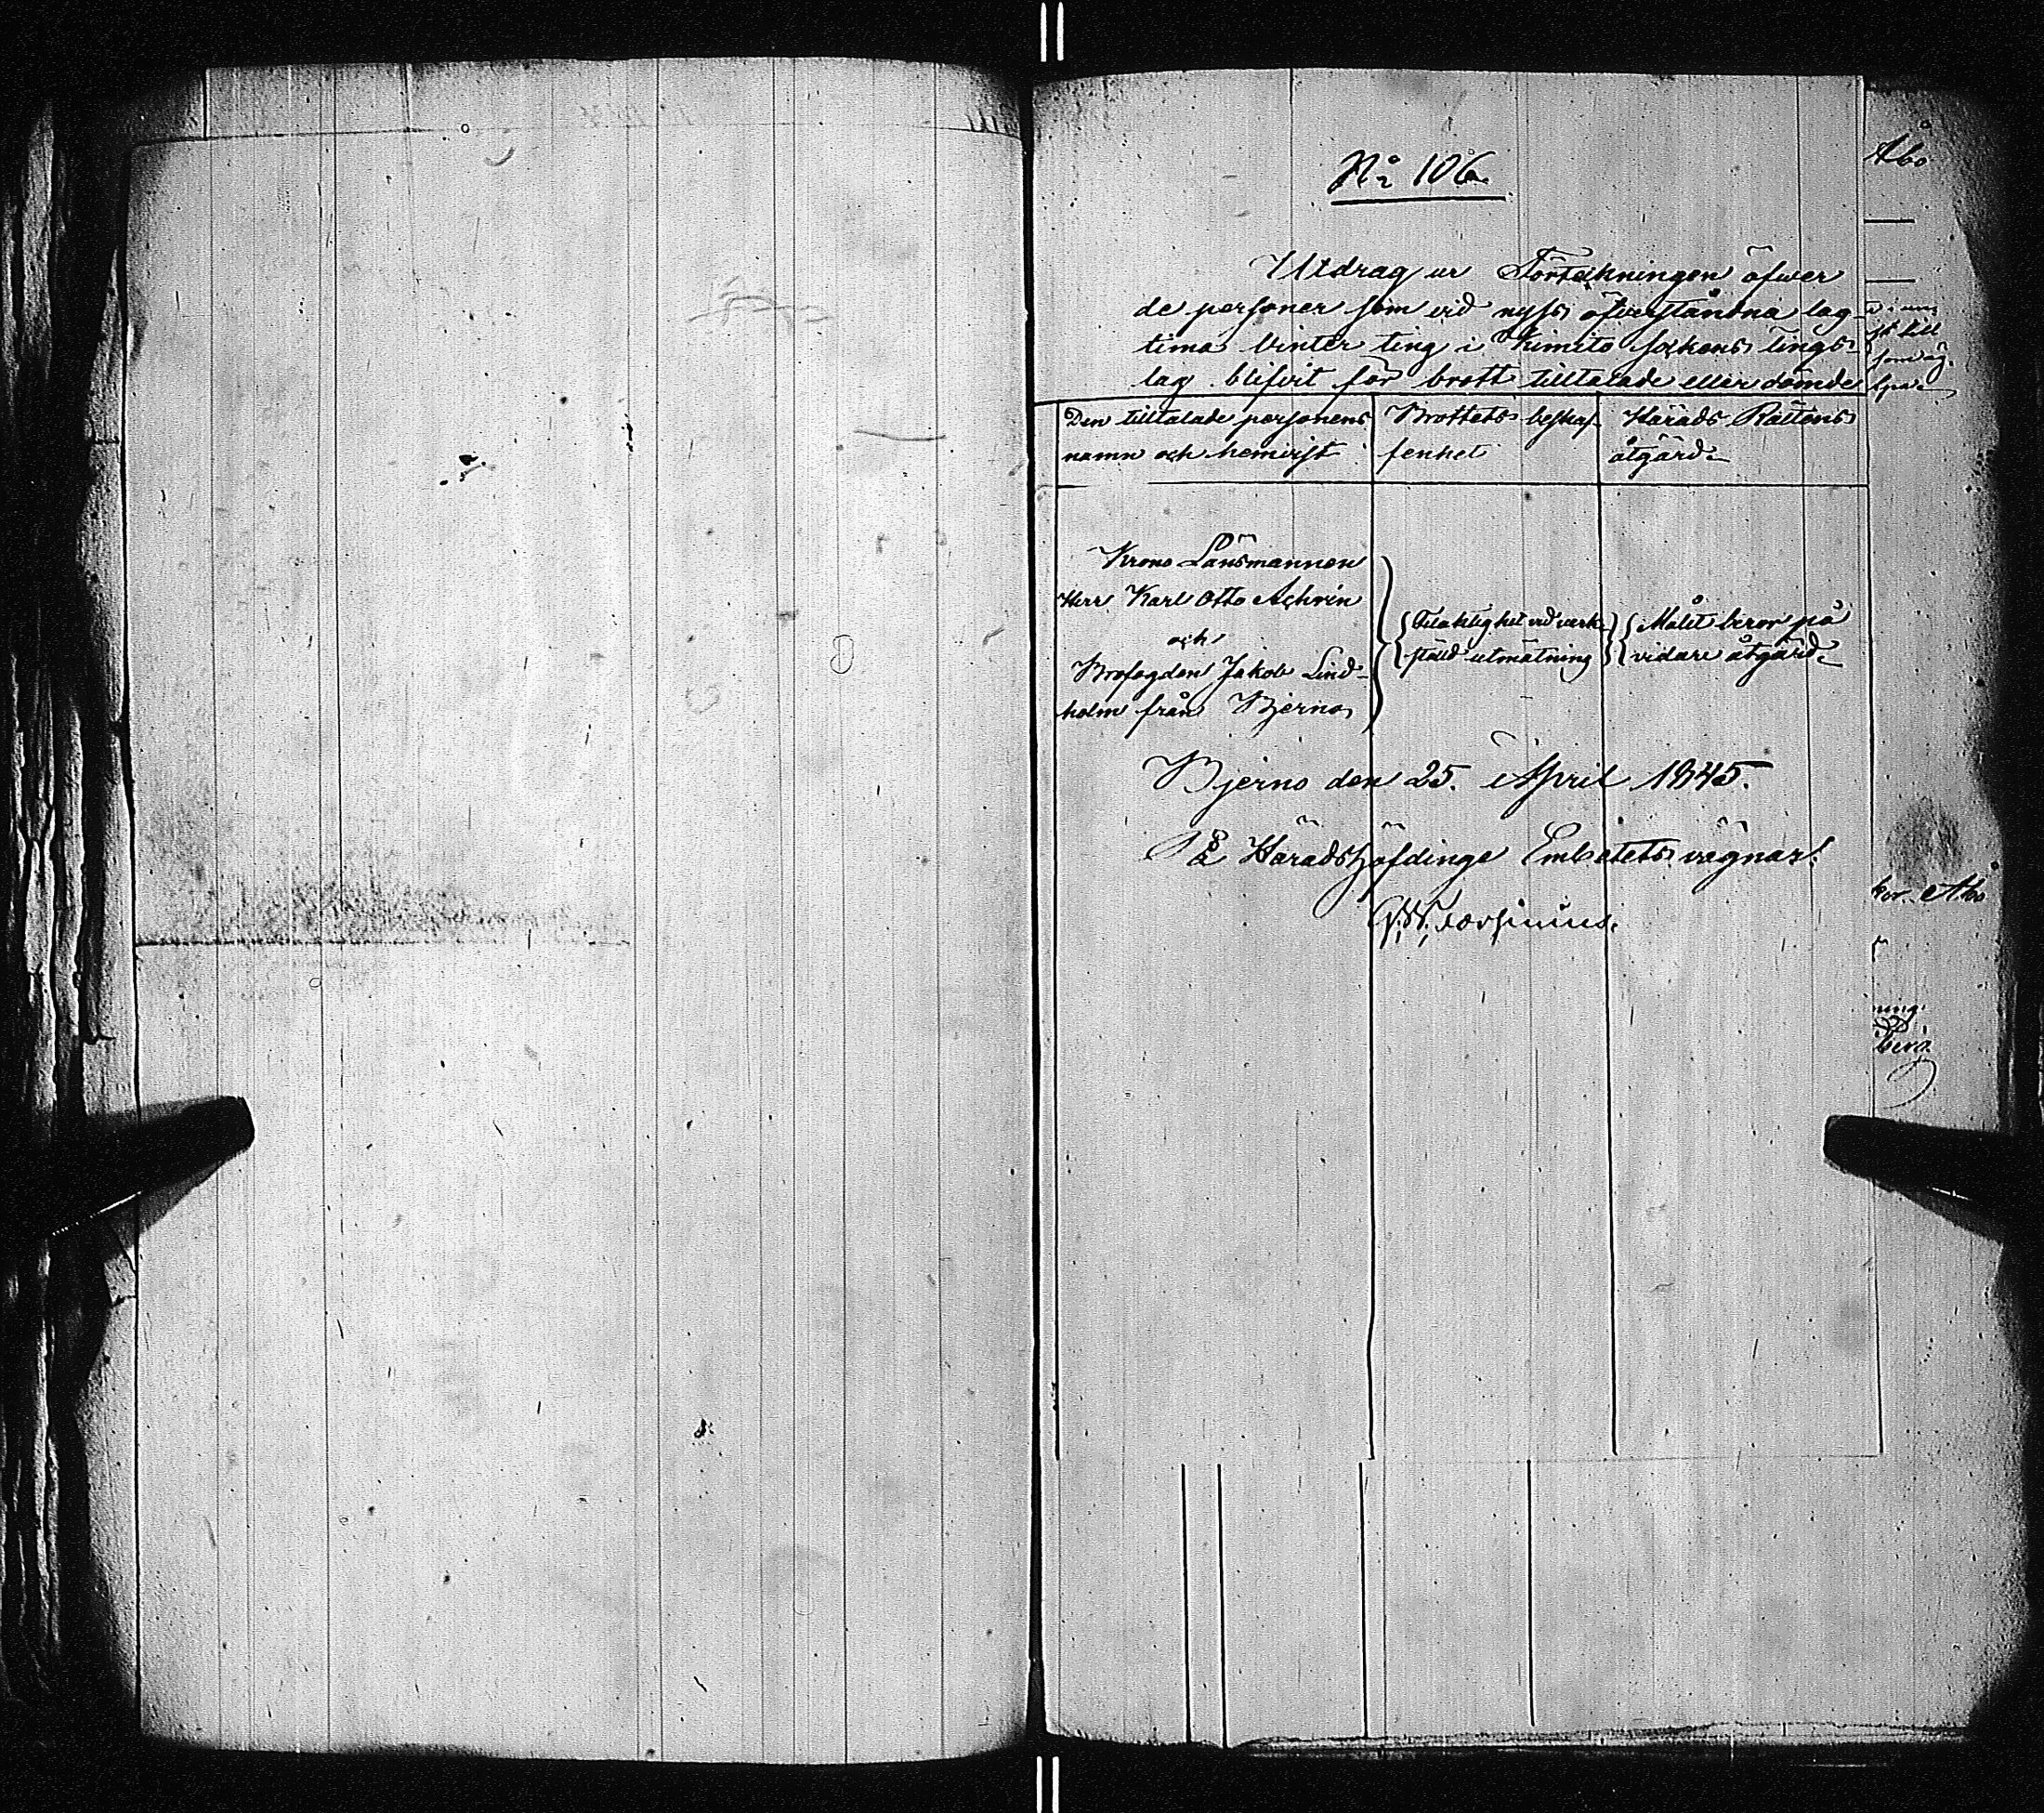 No 106.
Utdrag ur Förteckningen öfwer
de personer som vid nyss öfverståndna lag-
tima Vinter ting i Kimito Sockens tings-
lag blifvit för brott tilltalade eller dömde
Den tilltalade personens
namn och hemvist
Brottets beskaf-
fenhet
Härads Rättens
åtgärd
Krono Länsmannen
Herr Karl Otto
och
Brofogden Jakob Lind-
holm från Bjerno
Felaktighet vid verk-
ställd utmätning
Målet beror på
vidare åtgärd
Bjerno den 25. April 1845.
På Häradshöfdinge Embetets vägnar:
Åbo
till
som
Åbo
ning
berg